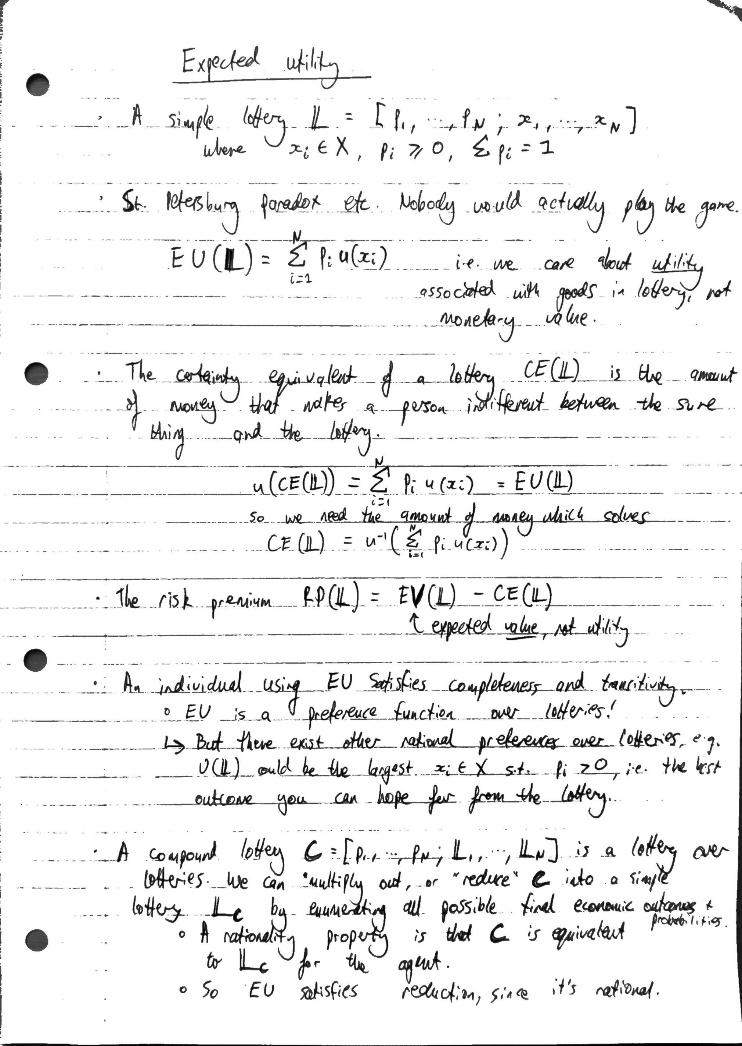 Expected utility
· A simple lottery 𝕃 = [p₁, ..., p_N ; x₁, ..., x_N]
where xᵢ ∈ X, pᵢ ⩾ 0, Σ pᵢ = 1
· St. Petersburg paradox etc. Nobody would actually play the game.
EU(𝕃) = Σ_{i=1}^{N} pᵢ u(xᵢ) i.e. we care about utility
associated with goods in lottery, not
monetary value.
· The certainty equivalent of a lottery CE(𝕃) is the amount
of money that makes a person indifferent between the sure
thing and the lottery.
u(CE(𝕃)) = Σ_{i=1}^{N} pᵢ u(xᵢ) = EU(𝕃)
So we need the amount of money which solves
CE(𝕃) = u⁻¹(Σ_{i=1}^{N} pᵢ u(xᵢ))
· The risk premium RP(𝕃) = EV(𝕃) - CE(𝕃)
↑ expected value, not utility
· An individual using EU satisfies completeness and transitivity.
∘ EU is a preference function over lotteries!
↳ But there exist other rational preferences over lotteries, e.g.
U(𝕃) could be the largest xᵢ ∈ X s.t. pᵢ > 0, i.e. the best
outcome you can hope for from the lottery.
· A compound lottery C = [p₁, ..., p_N ; 𝕃₁, ..., 𝕃_N] is a lottery over
lotteries. We can "multiply out, or "reduce" C into a simple
lottery 𝕃_C by enumerating all possible final economic outcomes + probabilities.
∘ A rationality property is that C is equivalent
to 𝕃_C for the agent.
∘ So EU satisfies reduction, since it's rational.